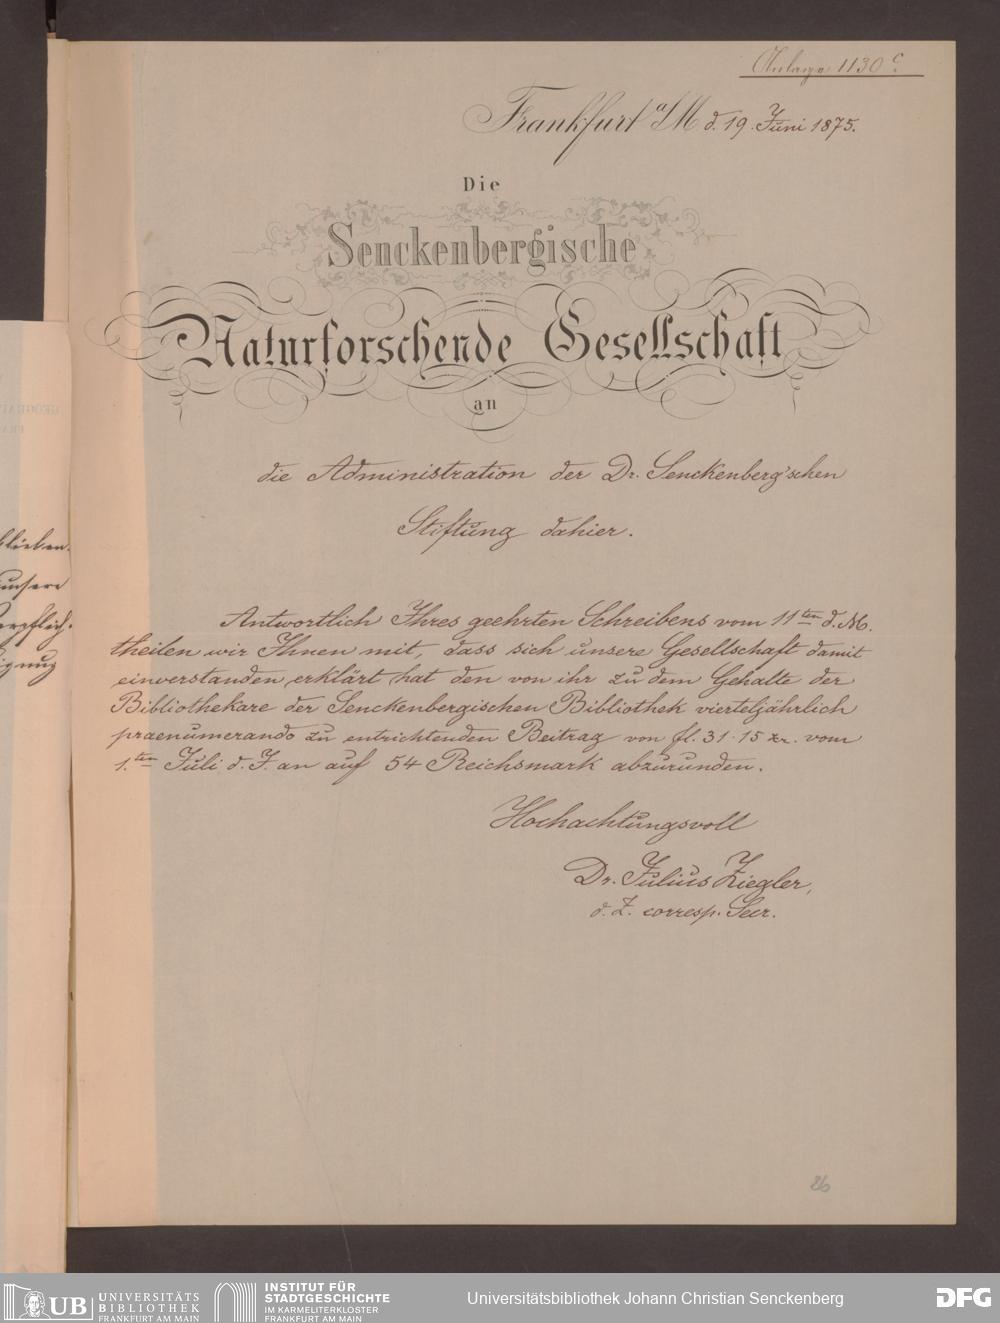 Anlage 1130 c.
Frankfurt a/M d. 19. Juni 1875.
Die
Senckenbergische
Naturforschende Gesellschaft
an
die Administration der Dr. Senckenberg'schen
Stiftung dahier.
Antwortlich Ihres geehrten Schreibens vom 11ten d. M.
theilen wir Ihnen mit, dass sich unsere Gesellschaft damit
einverstanden erklärt hat den von ihr zu dem Gehalte der
Bibliothekare der Senckenbergischen Bibliothek vierteljährlich
praenumerando zu entrichtenden Beitrag von fl. 31. 15 xr. vom
1.ten Juli d. J. an auf 54 Reichsmark abzurunden.
Hochachtungsvoll
Dr. Julius Ziegler,
d. Z. corresp. Secr.
26
blieben.
unsere
UB UNIVERSITÄTS
BIBLIOTHEK
FRANKFURT AM MAIN
INSTITUT FÜR
STADTGESCHICHTE
IM KARMELITERKLOSTER
FRANKFURT AM MAIN
Universitätsbibliothek Johann Christian Senckenberg
DFG